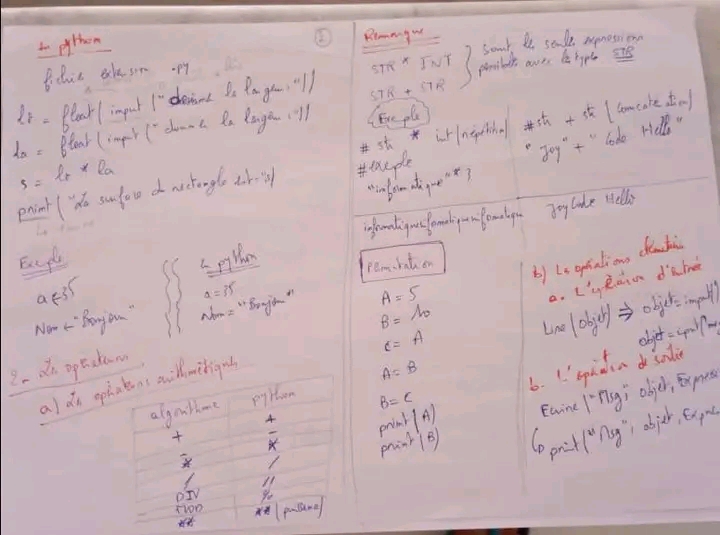 python
fichier extension .py
lr = float(input("donner la largeur:"))
la = float(input("donner la largeur:"))
s = lr * la
print("La surface du rectangle est:"s)
Exemple
a ← 35
Nom ← "Bonjour"
python
a = 35
Nom = "Bonjour"
2- Les opérateurs
a) Les opérateurs arithmétiques
algorithme python
+ +
- -
* *
/ /
DIV //
MOD %
** ** (puissance)
1
Remarque
STR * INT
STR + STR
sont les seules expressions
possibles avec les types STR
Exemple
# str * int (répétition)
# exemple
"informatique" * 3
# str + str (concaténation)
"Joy" + "Code Hello"
informatiqueinformatiqueinformatique
JoyCode Hello
Permutation
A = 5
B = 10
C = A
A = B
B = C
print(A)
print(B)
b) Les opérations élémentaires
a. L'opération d'entrée
Lire(objet) ⇒ objet = input()
objet = input("
b. L'opération de sortie
Ecrire("Msg", objet, Expres
print("Msg", objet, Expre